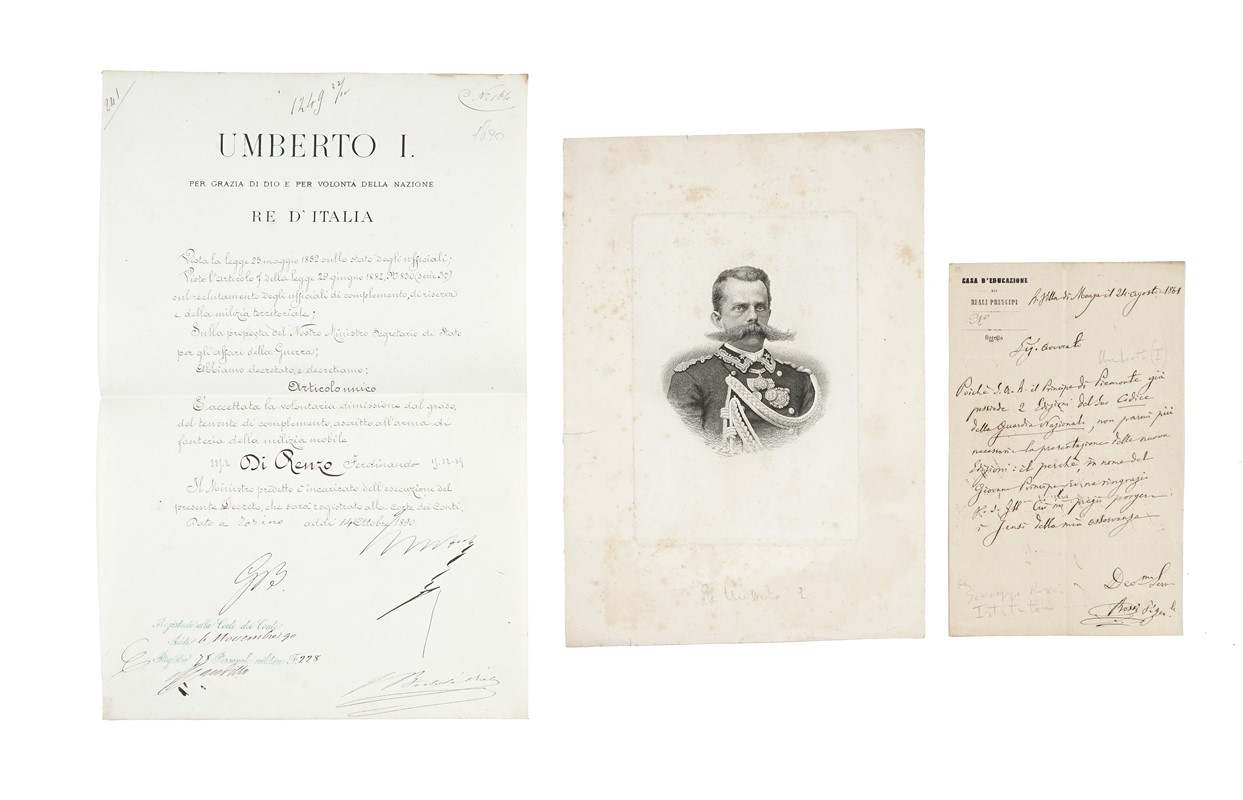 241
1249 22/10
N. 184
1890
UMBERTO I.
PER GRAZIA DI DIO E PER VOLONTÀ DELLA NAZIONE
RE D'ITALIA
Vista la legge 25 maggio 1852 sullo stato degli ufficiali;
Visto l'articolo 7 della legge 29 giugno 1882, N.° 830 (serie 3.ª)
sul reclutamento degli ufficiali di complemento, di riserva
e della milizia territoriale;
Sulla proposta del Nostro Ministro Segretario di Stato
per gli affari della Guerra;
Abbiamo decretato e decretiamo:
Articolo unico
È accettata la volontaria dimissione dal grado,
del tenente di complemento, ascritto all'arma di
fanteria della milizia mobile
Di Renzo Ferdinando
Il Ministro predetto è incaricato dell'esecuzione del
presente Decreto, che sarà registrato alla Corte dei Conti.
Dato a Torino addì 14 Ottobre 1890
Umberto
Registrato alla Corte dei Conti
Addì 6 Novembre 90
Registro 78 F.° 228
Umberto I
CASA D'EDUCAZIONE
DEI
REALI PRINCIPI
N.°
Oggetto
R. Villa di Monza il 24 Agosto 1861
Umberto (I)
Poichè S.A.R. il Principe di Piemonte già
possiede 2 Edizioni del suo Codice
della Guardia Nazionale, non parmi più
necessaria la presentazione della nuova
Edizione: il perchè, in nome del
Giovane Principe ne ringrazio
V. S. Ill. e mi pregio porgere
i sensi della mia osservanza
Dev.mo Serv.
Giuseppe Rossi
Istitutore
Rossi